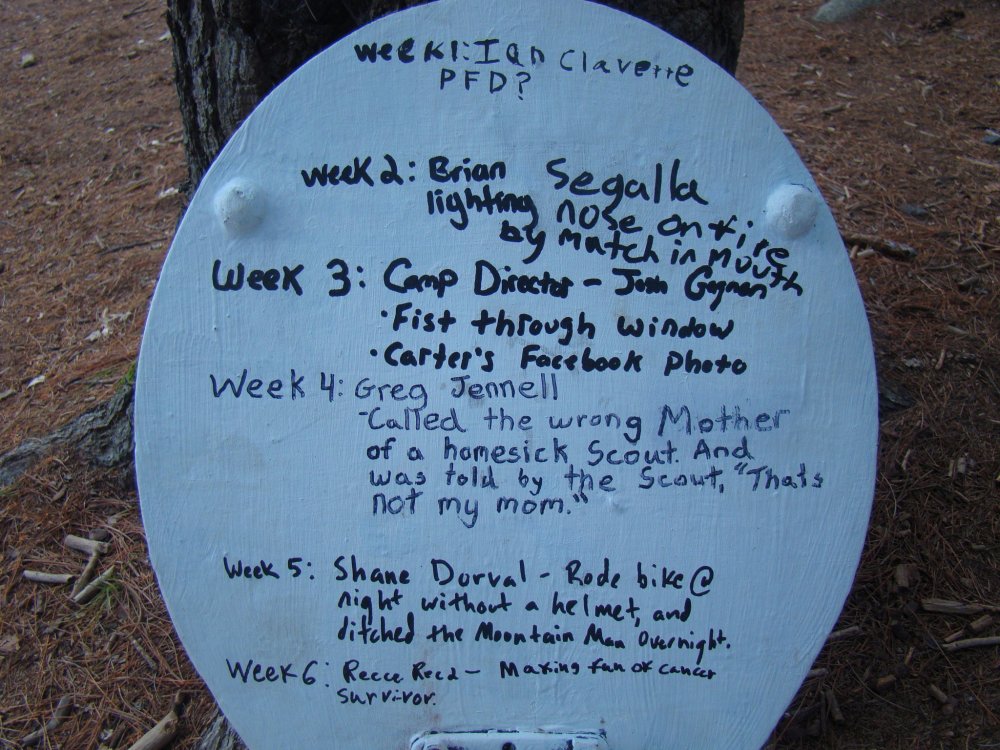 Week 1: Ian Clavette
PFD?
Week 2: Brian Segalla
lighting nose on fire
by match in mouth
Week 3: Camp Director - Josh Gagnon
• Fist through window
• Carter's Facebook Photo
Week 4: Greg Jennell
- Called the wrong Mother
of a homesick Scout. And
was told by the Scout, "Thats
not my mom."
Week 5: Shane Dorval - Rode bike @
night without a helmet, and
ditched the Mountain Man Overnight.
Week 6: Reece Reed - Making fun of cancer
survivor.